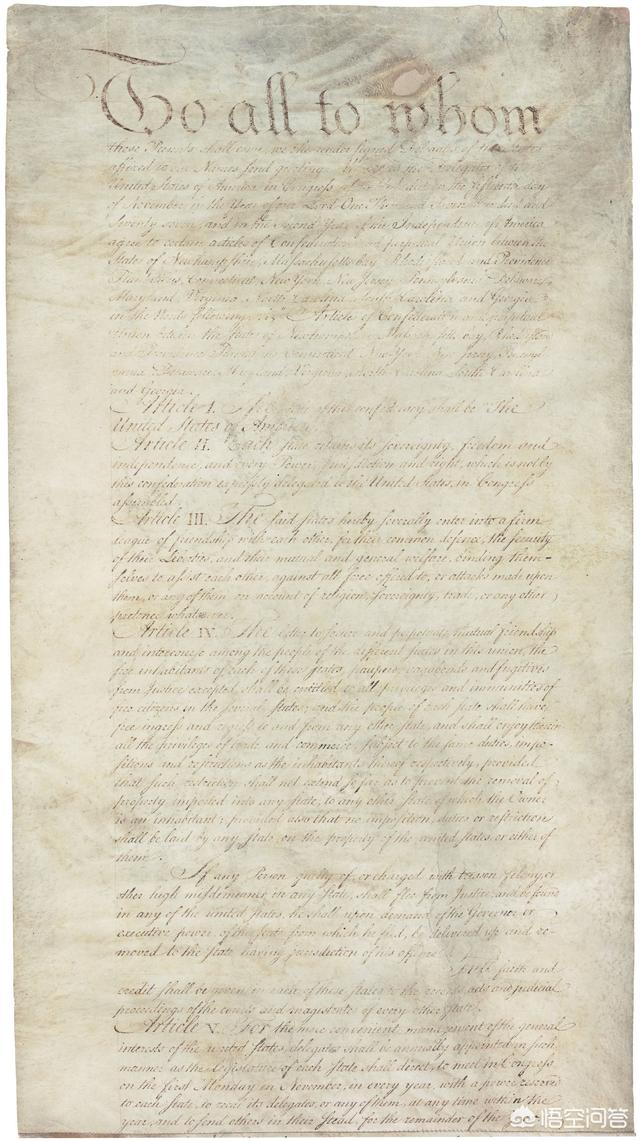 To all to whom
these Presents shall come, we the under signed Delegates of the States
affixed to our Names send greeting. the Delegates of the
United States of America in Congress assembled did on the fifteenth day
of November in the Year of our Lord One Thousand Seven Hundred and
Seventy seven, and in the Second Year of the Independence of America
agree to certain articles of Confederation and perpetual Union between the
States of Newhampshire, Massachusetts bay, Rhodeisland and Providence
Plantations, Connecticut, New York, New Jersey, Pennsylvania, Delaware,
Maryland, Virginia, North Carolina, South Carolina and Georgia
in the Words following, viz. Article of Confederation and perpetual
Union between the States of Newhampshire, Massachusetts bay, Rhodeisland
and Providence Plantations, Connecticut, New York, New Jersey, Pennsyl
vania, Delaware, Maryland, Virginia, North Carolina, South Carolina
and Georgia.
Article I. The of this confederacy shall be "The
United States of America."
Article II. Each state retains its sovereignty, freedom and
independence, and every Power, Jurisdiction and right, which is not by
this confederation expressly delegated to the United States, in Congress
assembled.
Article III. The said states hereby severally enter into a firm
league of friendship with each other, for their common defence, the security
of their Liberties, and their mutual and general welfare, binding them-
selves to assist each other, against all force offered to, or attacks made upon
them, or any of them, on account of religion, sovereignty, trade, or any other
pretence whatever.
Article IV. The better to secure and perpetuate mutual friendship
and intercourse among the people of the different states in this union, the
free inhabitants of each of these states, paupers, vagabonds and fugitives
from Justice excepted, shall be entitled to all privileges and immunities of
free citizens in the several states; and the people of each state shall have
free ingress and regress to and from any other state, and shall enjoy therein
all the privileges of trade and commerce, subject to the same duties, impo-
sitions and restrictions as the inhabitants thereof respectively, provided
that such restriction shall not extend so far as to prevent the removal of
property imported into any state, to any other state of which the Owner
is an inhabitant; provided also that no imposition, duties or restriction
shall be laid by any state, on the property of the united states, or either of
them.
If any Person guilty of, or charged with treason, felony, or
other high misdemeanor in any state, shall flee from Justice, and be found
in any of the united states, he shall upon demand of the Governor or
executive power, of the state from which he fled, be delivered up and re-
moved to the state having jurisdiction of his offence.
Full faith and
credit shall be given in each of these states to the records, acts and judicial
proceedings of the courts and magistrates of every other state.
Article V. For the more convenient management of the general
interests of the united states, delegates shall be annually appointed in such
manner as the legislature of each state shall direct, to meet in Congress
on the first Monday in November, in every year, with a power reserved
to each state, to recal its delegates, or any of them, at any time within the
year, and to send others in their stead, for the remainder of the
悟空问答